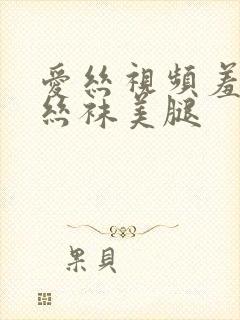 愛絲視頻羞
絲袜美腿
果貝